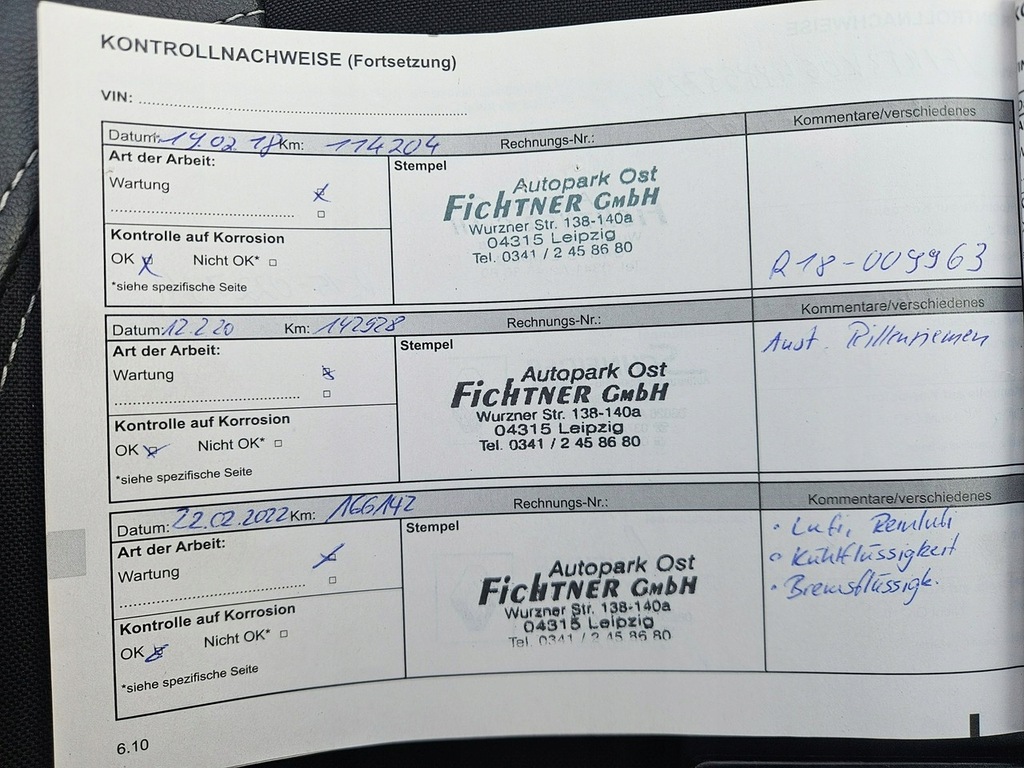 KONTROLLNACHWEISE (Fortsetzung)
VIN:
Datum: 19.02.18 Km: 114204 Rechnungs-Nr.: Kommentare/verschiedenes
Art der Arbeit:
Wartung
Stempel
Autopark Ost
FICHTNER GMBH
Wurzner Str. 138-140a
04315 Leipzig
Tel. 0341 / 2 45 86 80
Kontrolle auf Korrosion
OK Nicht OK*
*siehe spezifische Seite
R18-009963
Datum: 12.2.20 Km: 142928 Rechnungs-Nr.: Kommentare/verschiedenes
Art der Arbeit:
Wartung
Stempel
Autopark Ost
FICHTNER GMBH
Wurzner Str. 138-140a
04315 Leipzig
Tel. 0341 / 2 45 86 80
Kontrolle auf Korrosion
OK Nicht OK*
*siehe spezifische Seite
Aust. Rillenriemen
Datum: 22.02.2022 Km: 166142 Rechnungs-Nr.: Kommentare/verschiedenes
Art der Arbeit:
Wartung
Stempel
Autopark Ost
FICHTNER GMBH
Wurzner Str. 138-140a
04315 Leipzig
Tel. 0341 / 2 45 86 80
Kontrolle auf Korrosion
OK Nicht OK*
*siehe spezifische Seite
• Lufi,
• Kühlflüssigkeit
• Bremsflüssigk.
6.10